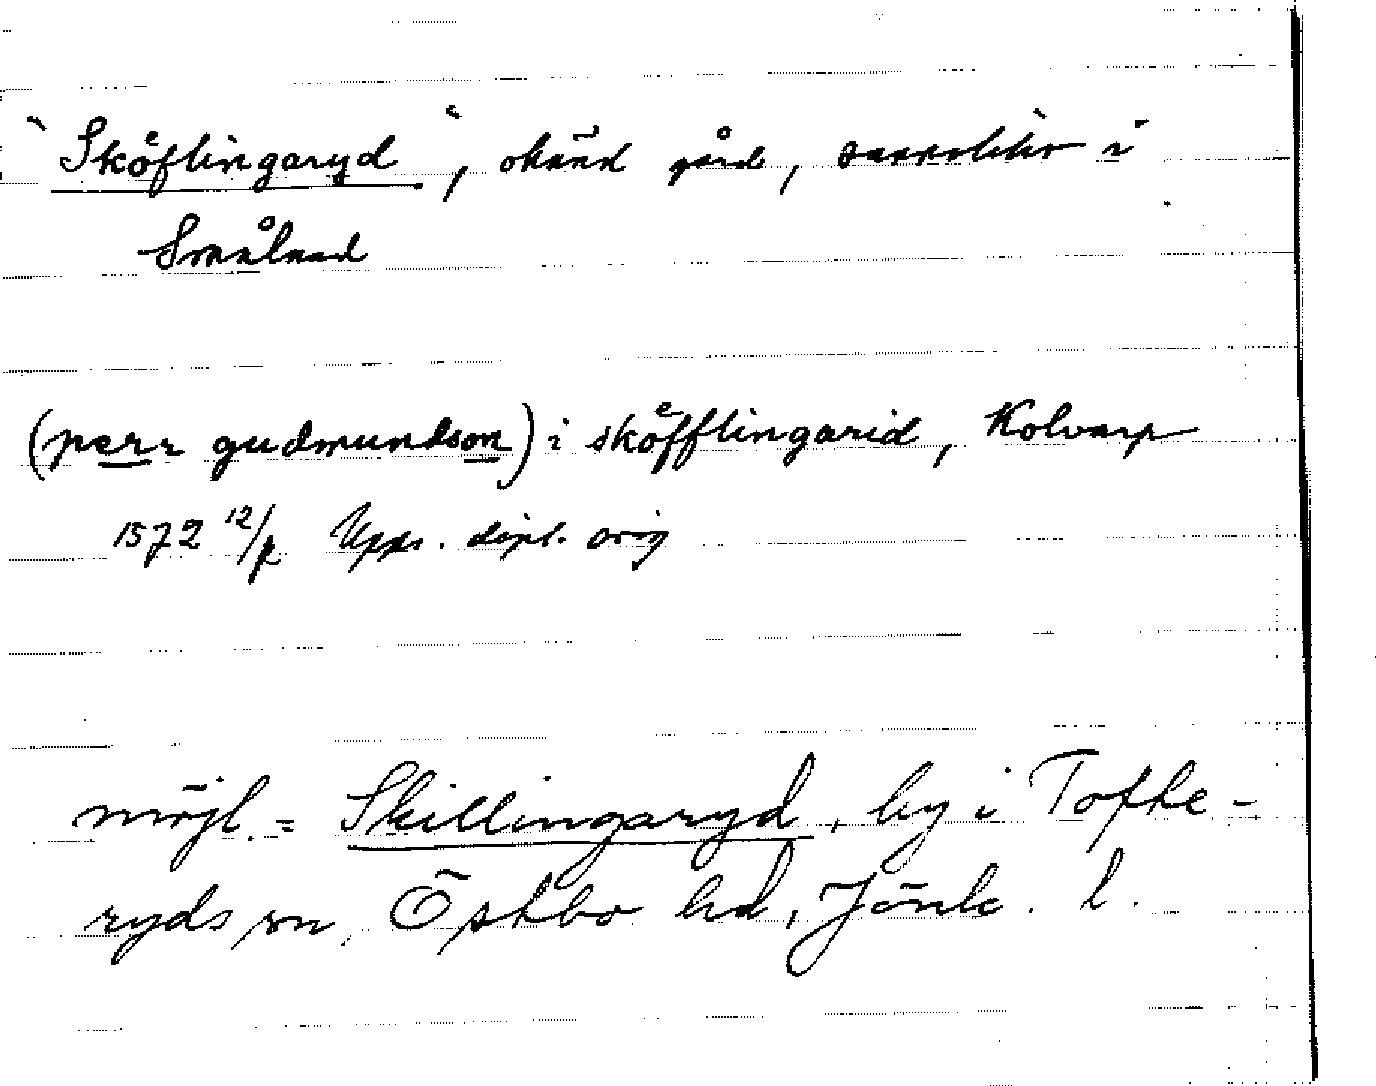 "Sköflingaryd", okänd gård, sannolikt i
Småland
(perr gudmundson) i sköfflingarid, Kolvarp
1572 12/2 Upps. dipl. orig
möjl. = Skillingaryd, by i Tofte-
ryds sn, Östbo hd, Jönk. l.